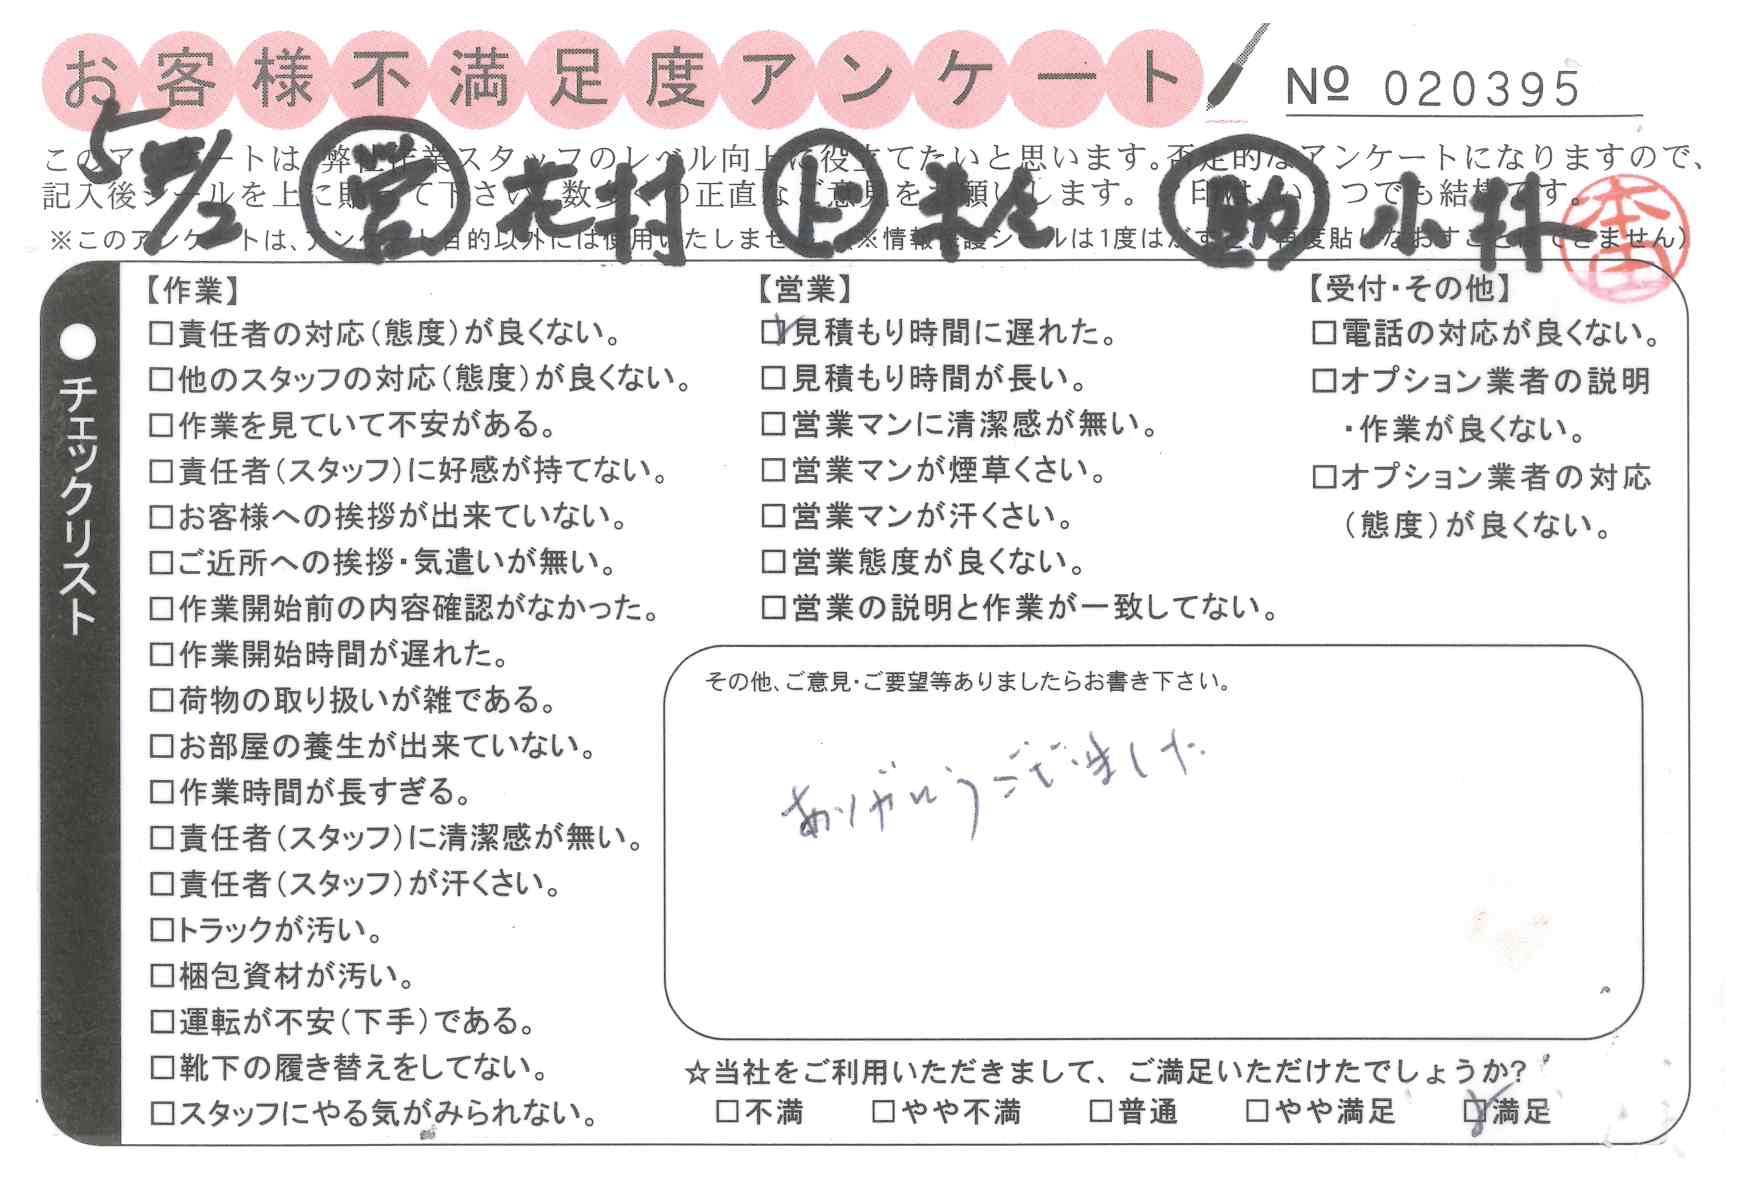 お客様不満足度アンケート
Nº 020395
このアンケートは、弊社作業スタッフのレベル向上に役立てたいと思います。否定的なアンケートになりますので、
記入後シールを上に貼って下さい。数多くの正直なご意見をお願いします。 印は、いくつでも結構です。
※このアンケートは、アンケート目的以外には使用いたしません。(※情報保護シールは1度はがすと、再度貼りなおすことはできません)
5/12 営 花村 助 小林
本田
●チェックリスト
【作業】
□責任者の対応(態度)が良くない。
□他のスタッフの対応(態度)が良くない。
□作業を見ていて不安がある。
□責任者(スタッフ)に好感が持てない。
□お客様への挨拶が出来ていない。
□ご近所への挨拶・気遣いが無い。
□作業開始前の内容確認がなかった。
□作業開始時間が遅れた。
□荷物の取り扱いが雑である。
□お部屋の養生が出来ていない。
□作業時間が長すぎる。
□責任者(スタッフ)に清潔感が無い。
□責任者(スタッフ)が汗くさい。
□トラックが汚い。
□梱包資材が汚い。
□運転が不安(下手)である。
□靴下の履き替えをしてない。
□スタッフにやる気がみられない。
【営業】
☑見積もり時間に遅れた。
□見積もり時間が長い。
□営業マンに清潔感が無い。
□営業マンが煙草くさい。
□営業マンが汗くさい。
□営業態度が良くない。
□営業の説明と作業が一致してない。
【受付・その他】
□電話の対応が良くない。
□オプション業者の説明
・作業が良くない。
□オプション業者の対応
(態度)が良くない。
その他、ご意見・ご要望等ありましたらお書き下さい。
ありがとうございました
☆当社をご利用いただきまして、ご満足いただけたでしょうか?
□不満 □やや不満 □普通 □やや満足 ☑満足